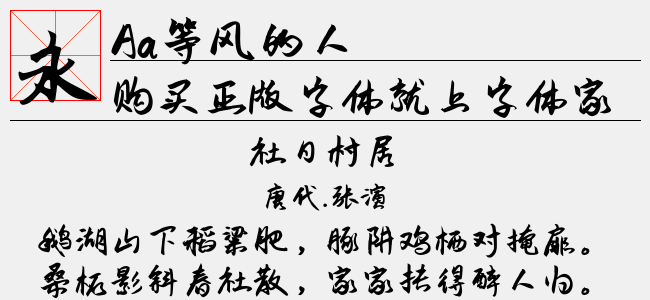 永
Aa等风的人
购买正版字体就上字体家
社日村居
唐代.张演
鹅湖山下稻粱肥，豚阱鸡栖对掩扉。
桑柘影斜春社散，家家扶得醉人归。